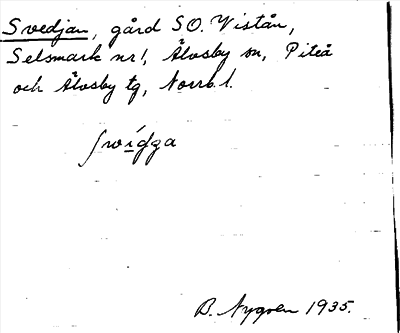 Svedjan, gård SO. Vistån,
Selsmark nr 1, Älvsby sn, Piteå
och Älvsby tg, Norrb. l.
B. Nygren 1935.